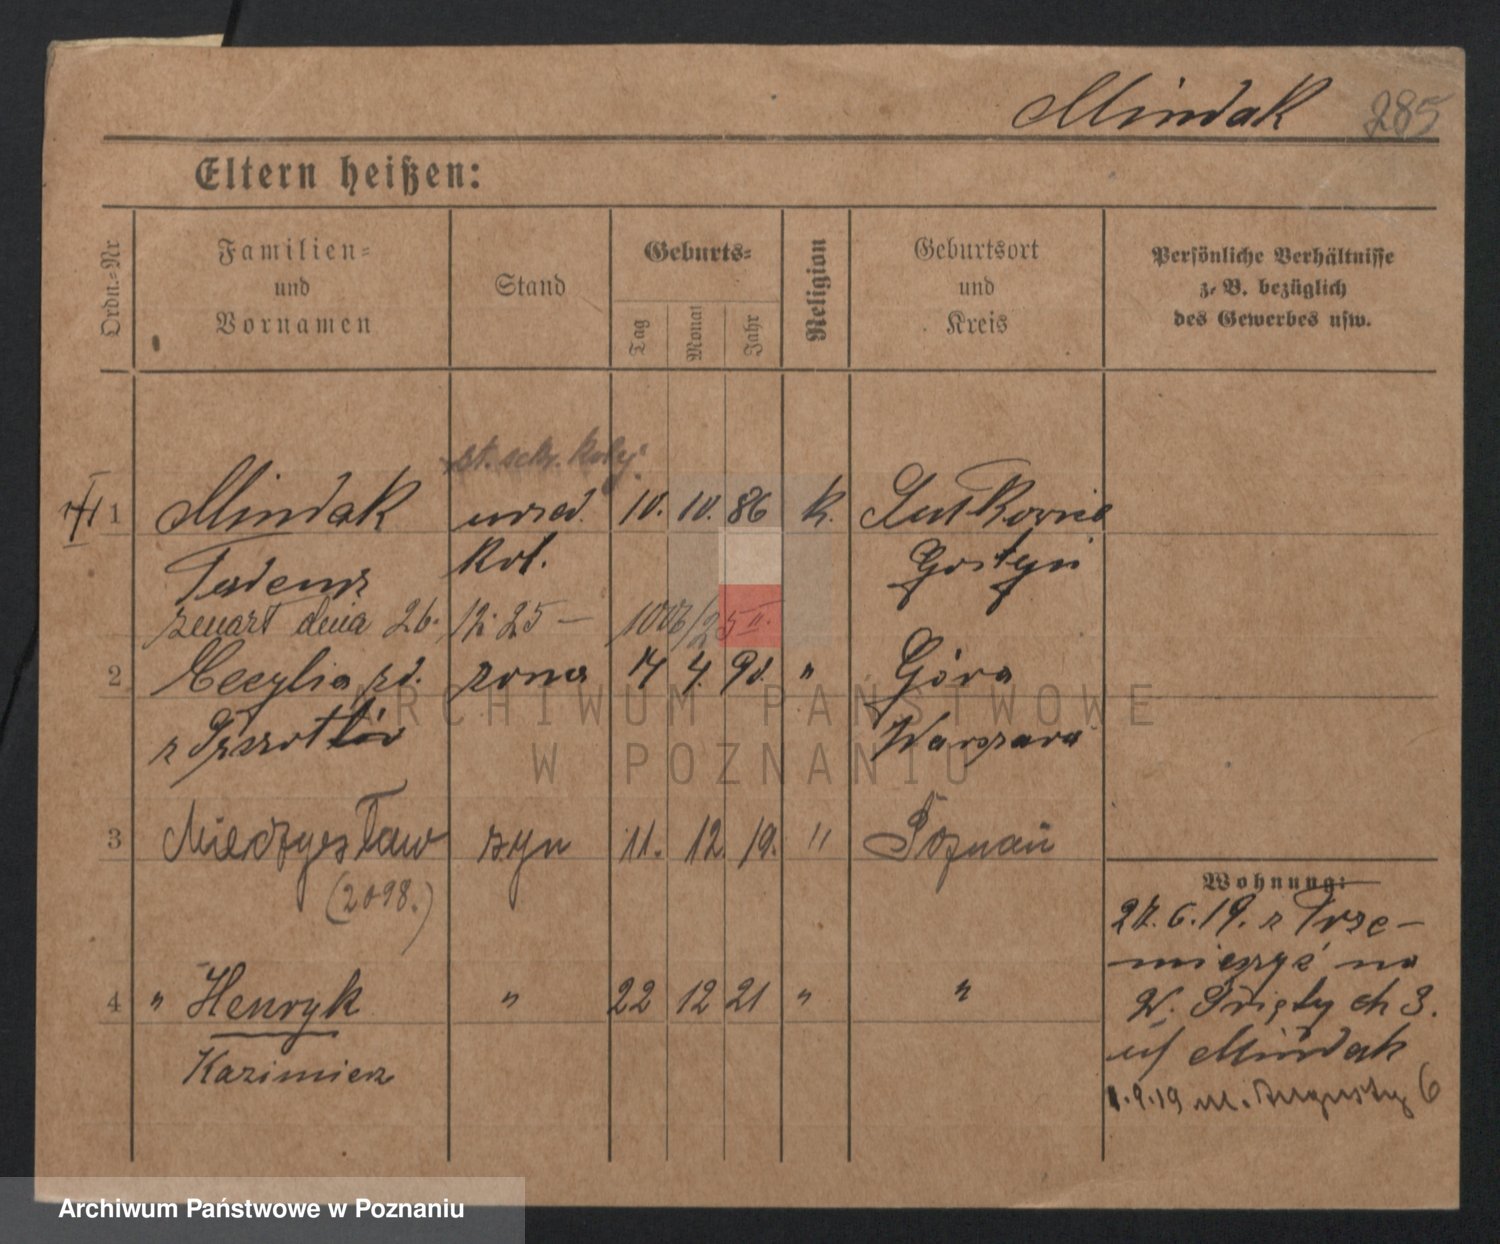 Mindak 285
Eltern heißen:
Ordn.-Nr
Familien-
und
Vornamen
Stand
Geburts-
Tag
Monat
Jahr
Religion
Geburtsort
und
Kreis
Persönliche Verhältnisse
z. B. bezüglich
des Gewerbes usw.
1 Mindak urzęd. 10. 10. 86 k.
kol. Gostyń
zmarł dnia 26. 12. 25 —
2 Cecylia żona 4. 90. " Góra
z Warszawa
3 Mieczysław syn 11. 12. 19. " Poznań
(2098.)
4 " Henryk " 22 12 21 " "
Kazimierz
Wohnung:
6. 19. z
na
W. 3.
Mindak
1.9.19 6
ARCHIWUM PAŃSTWOWE
W POZNANIU
Archiwum Państwowe w Poznaniu